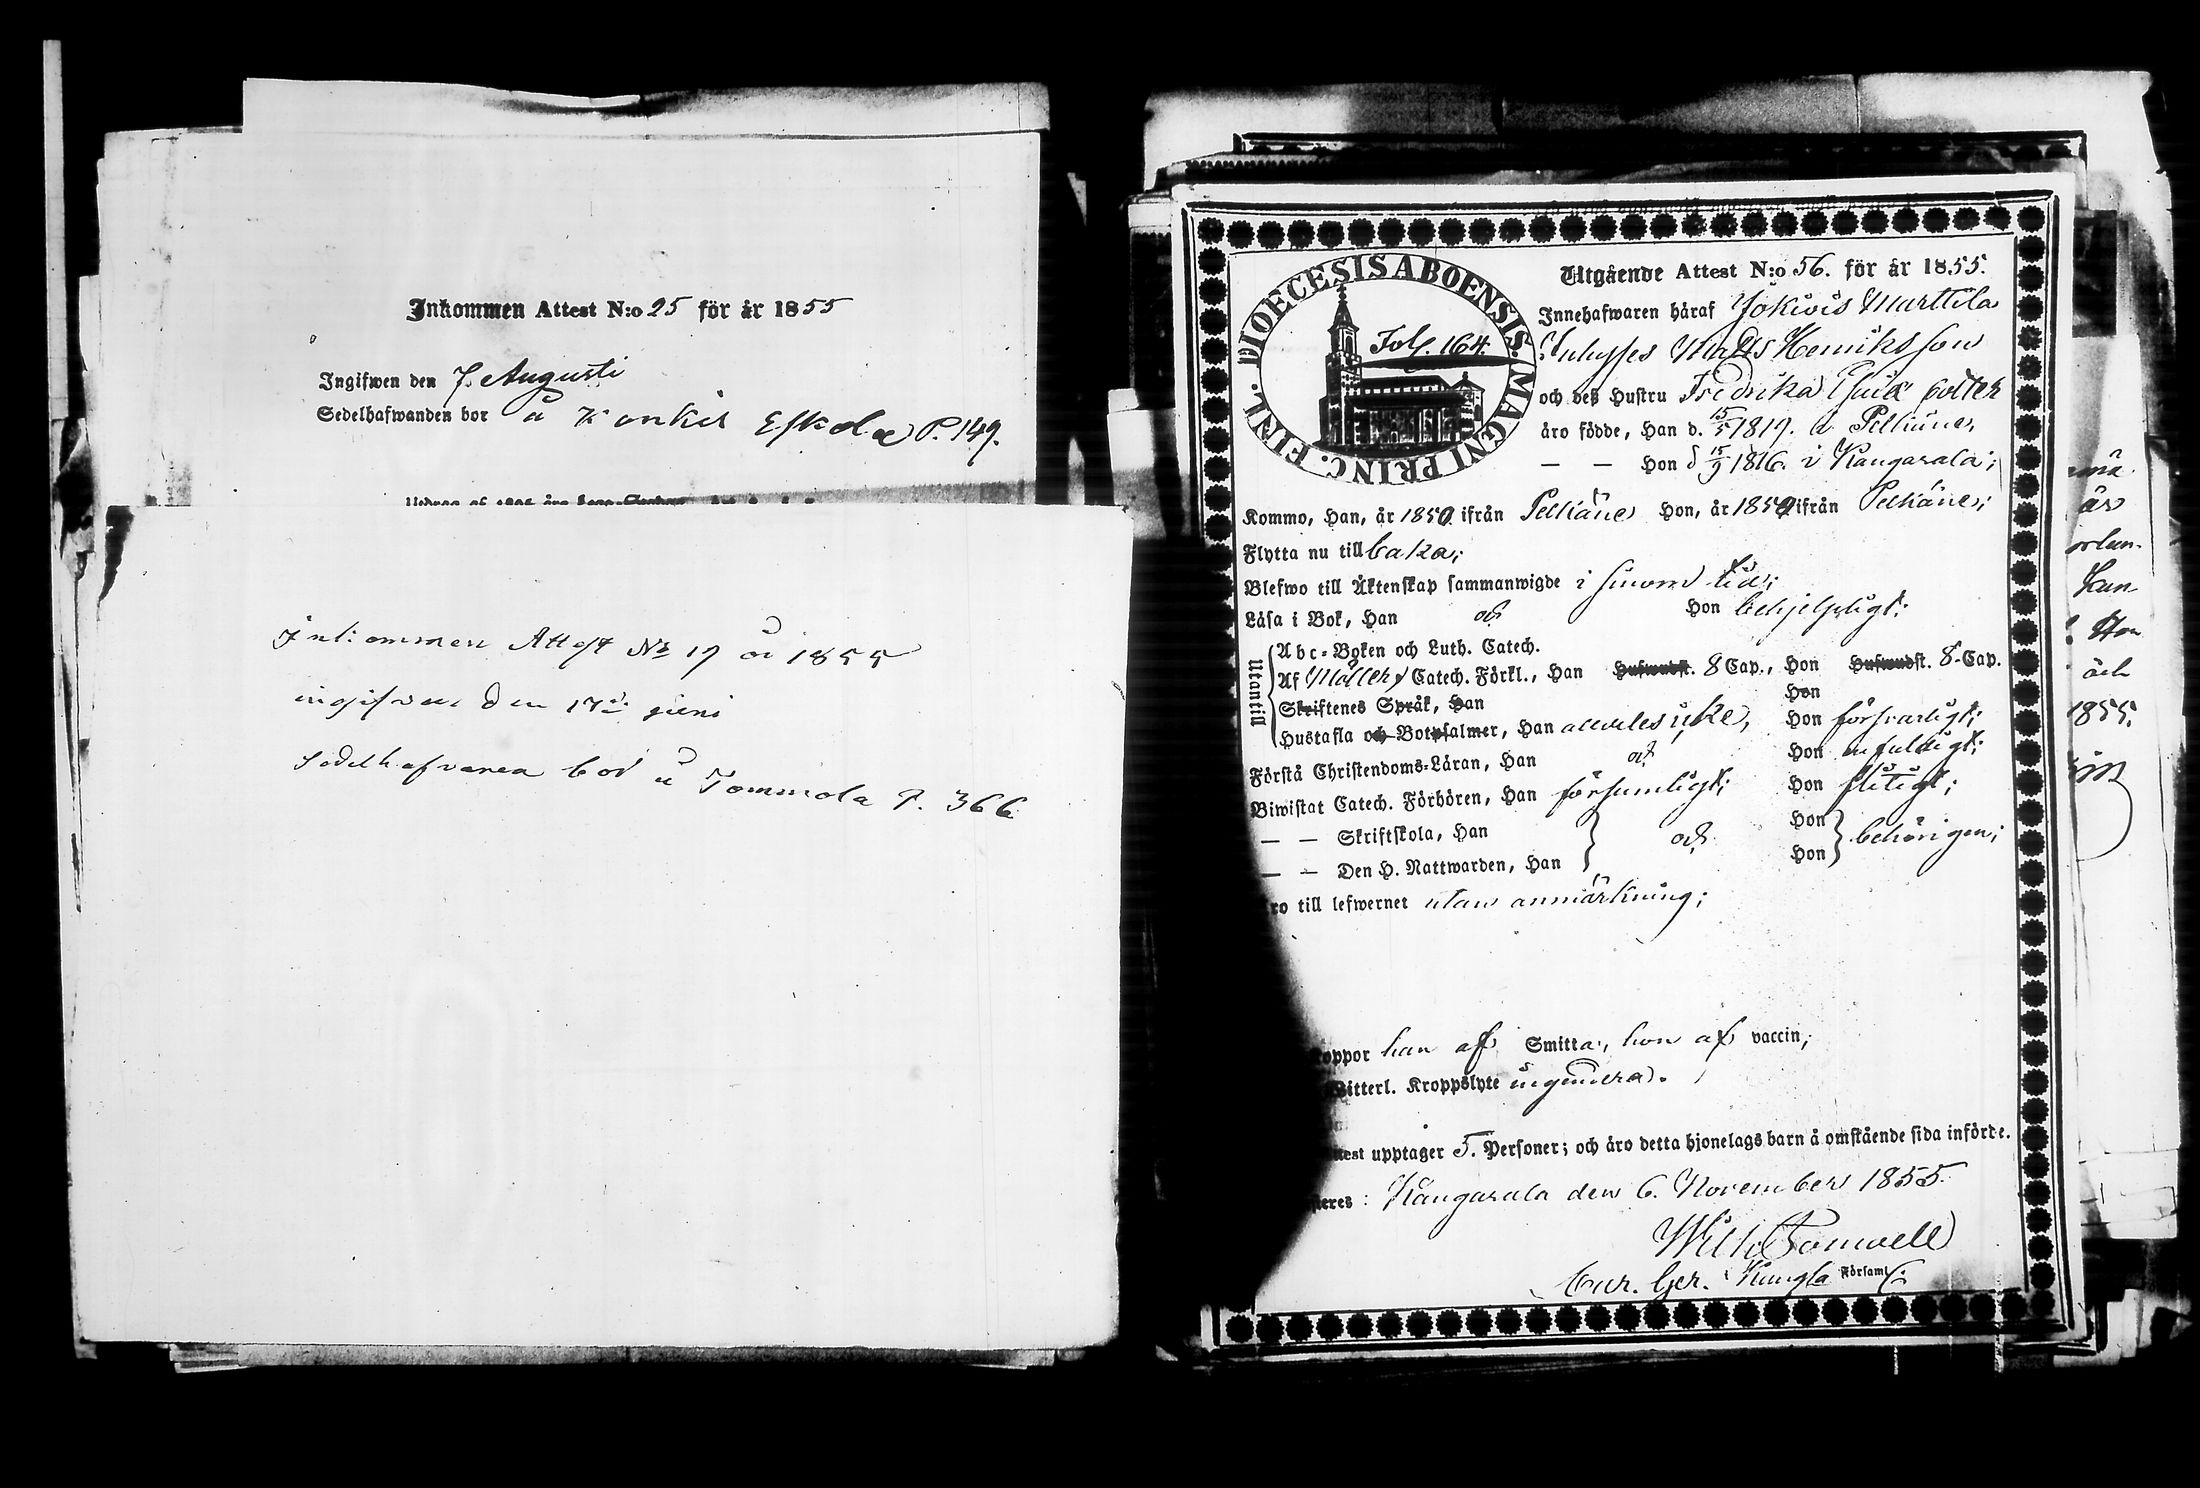 Inkommen Attest N:o 25 för år 1855
Ingifwen den 7. Augusti
Sedelhafwanden bor å Konkis Eskola P. 149.
Inkommen Attest No 19 år 1855
ingifven den 17de juni
Sedelhafvaren bor å Tommola P. 366
DIOECESIS ABOENSIS. MAGNI PRINC. FINL.
Fol. 164.
Utgående Attest N:o 56. för år 1855.
Innehafwaren håraf Jokiois Marttila
Inhyses Matts Henriksson
och deß Hustru Fredrika dotter
åro födde, Han d. 15/5 1819. i Pelkäne,
— — Hon d 15/9 1816. i Kangasala;
Kommo, Han, år 1850 ifrån Pelkäne Hon, år 1850 ifrån Pelkäne;
Flytta nu tillbaka;
Blefwo till Äktenskap sammanwigde i sinom tid;
Läsa i Bok, Han och Hon behjelpligt;
Utantill
Abc-Boken och Luth. Catech.
Af Möllers Catech. Förkl., Han Hufwudst. 8 Cap., Hon Hufwudst. 8 Cap.
Skriftenes Språk, Han Hon
Hustafla och Botpsalmer, Han alldeles icke, Hon försvarligt;
Förstå Christendoms-Låran, Han och Hon enfaldigt;
Biwistat Catech. Förhören, Han försumligt; Hon flitigt;
— — Skriftskola, Han och Hon behörigen;
— — Den H. Nattwarden, Han Hon
ro till lefwernet utan anmärkning;
oppor han af Smitta, hon af vaccin;
itterl. Kroppslyte ingendera.
ttest upptager 5. Personer; och åro detta hjonelags barn å omstående sida införde.
teres: Kangasala den 6. November 1855.
Cur. Ger. Kangla Församl:
1855.